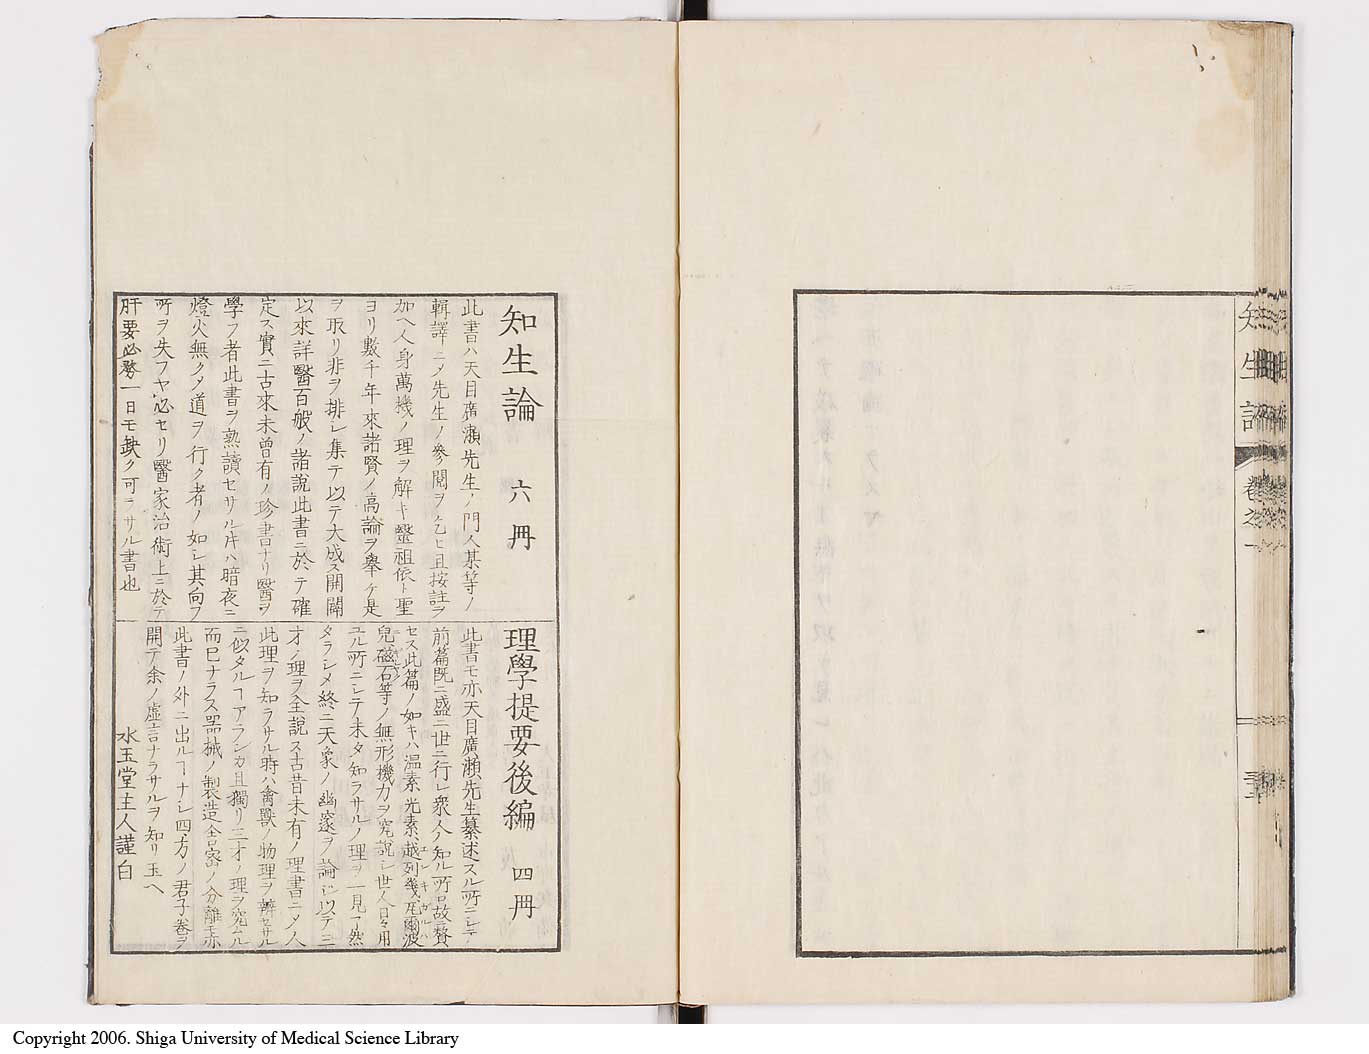 知生論
卷之一
知生論 六冊
此書ハ天目廣瀬先生ノ門人某等ノ
輯譯ニメ先生ノ參閱ヲ乞ヒ且按註ヲ
加ヘ人身萬機ノ理ヲ解キ毉祖依卜聖
ヨリ數千年來諸賢ノ高論ヲ舉ケ是
ヲ取リ非ヲ排シ集テ以テ大成ス開闢
以來詳醫百般ノ諸說此書ニ於テ確
定ス實ニ古來未曾有ノ珍書ナリ醫ヲ
學フ者此書ヲ熟讀セサル片ハ暗夜ニ
燈火無クメ道ヲ行ク者ノ如シ其向フ
所ヲ失フヤ必セリ醫家治術上ニ於テ
肝要必務一日モ缺ク可ラサル書也
理學提要後編 四冊
此書モ亦天目廣瀬先生纂述スル所ニシテ
前篇既ニ盛ニ世ニ行レ衆人ノ知ル所ナ故ニ贅
セス此篇ノ如キハ温素光素越列幾瓦爾波
エレキガルハ
兒磁石等ノ無形機力ヲ究說シ世人日々用
ユル所ニシテ未タ知ラサルノ理ヲ一見了然
タラシメ終ニ天象ノ幽邃ヲ論シ以テ三
才ノ理ヲ全說ス古昔未有ノ理書ニメ人
此理ヲ知ラサル時ハ禽獸ノ物理ヲ辨セサル
ニ似タルヿアランカ且獨リ三才ノ理ヲ究ムル
而已ナラス器械ノ製造合密ノ分離モ亦
此書ノ外ニ出ルヿナシ四方ノ君子卷ヲ
開テ余ノ虛言ナラサルヲ知リ玉ヘ
水玉堂主人謹白
Copyright 2006. Shiga University of Medical Science Library